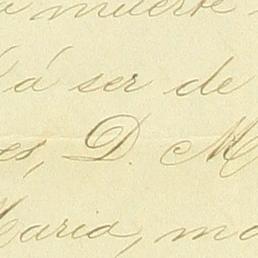 muerte
á ser de
es, D. M
Maria, ma